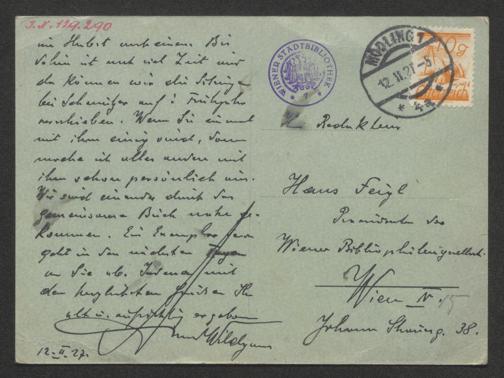 I.N. 129.290
im Herbst mit einem Bei
sein ist noch viel Zeit und
da können wir die Sitzung
bei Schnitzer auf's Frühjahr
verschieben. Wenn Sie einmal
mit ihm einig sind, dann
mache ich alles andere mit
ihm schon persönlich aus.
Wir sind einander durch das
gemeinsame Buch nahe ge-
kommen. Ein Exemplar davon
geht in den nächsten Tagen
an Sie ab. Indem mit
den herzlichsten Grüßen Ihr
alt u. aufrichtig ergebener
Anton Wildgans
12. II. 27.
WIENER STADTBIBLIOTHEK
MÖDLING 1
12.II.27
Redakteur
Hans Feigl
Präsidenten der
Wiener Bibliophilengesellsch.
Wien IV.
Johann Straussg. 38.